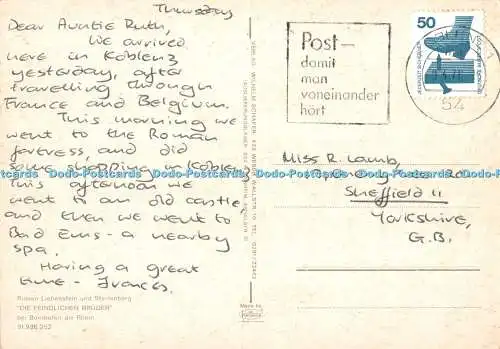 Thursday
Dear Auntie Ruth,
We arrived
here in Koblenz
yesterday, after
travelling through
France and Belgium.
This morning we
went to the Roman
fortress, and did
some shopping in Koblenz.
This afternoon we
went to an old castle,
and then we went to
Bad Ems - a nearby
spa.
Having a great
time - Frances.
Ruinen Liebenstein und Sterrenberg
"DIE FEINDLICHEN BRÜDER"
bei Bornhofen am Rhein
Post—
damit
man
voneinander
hört
50
54
Miss R. Lamb,
Sheffield 11
Yorkshire,
G.B.
Dodo-Postcards Dodo-Postcards Dodo-Postcards Dodo-Postcards